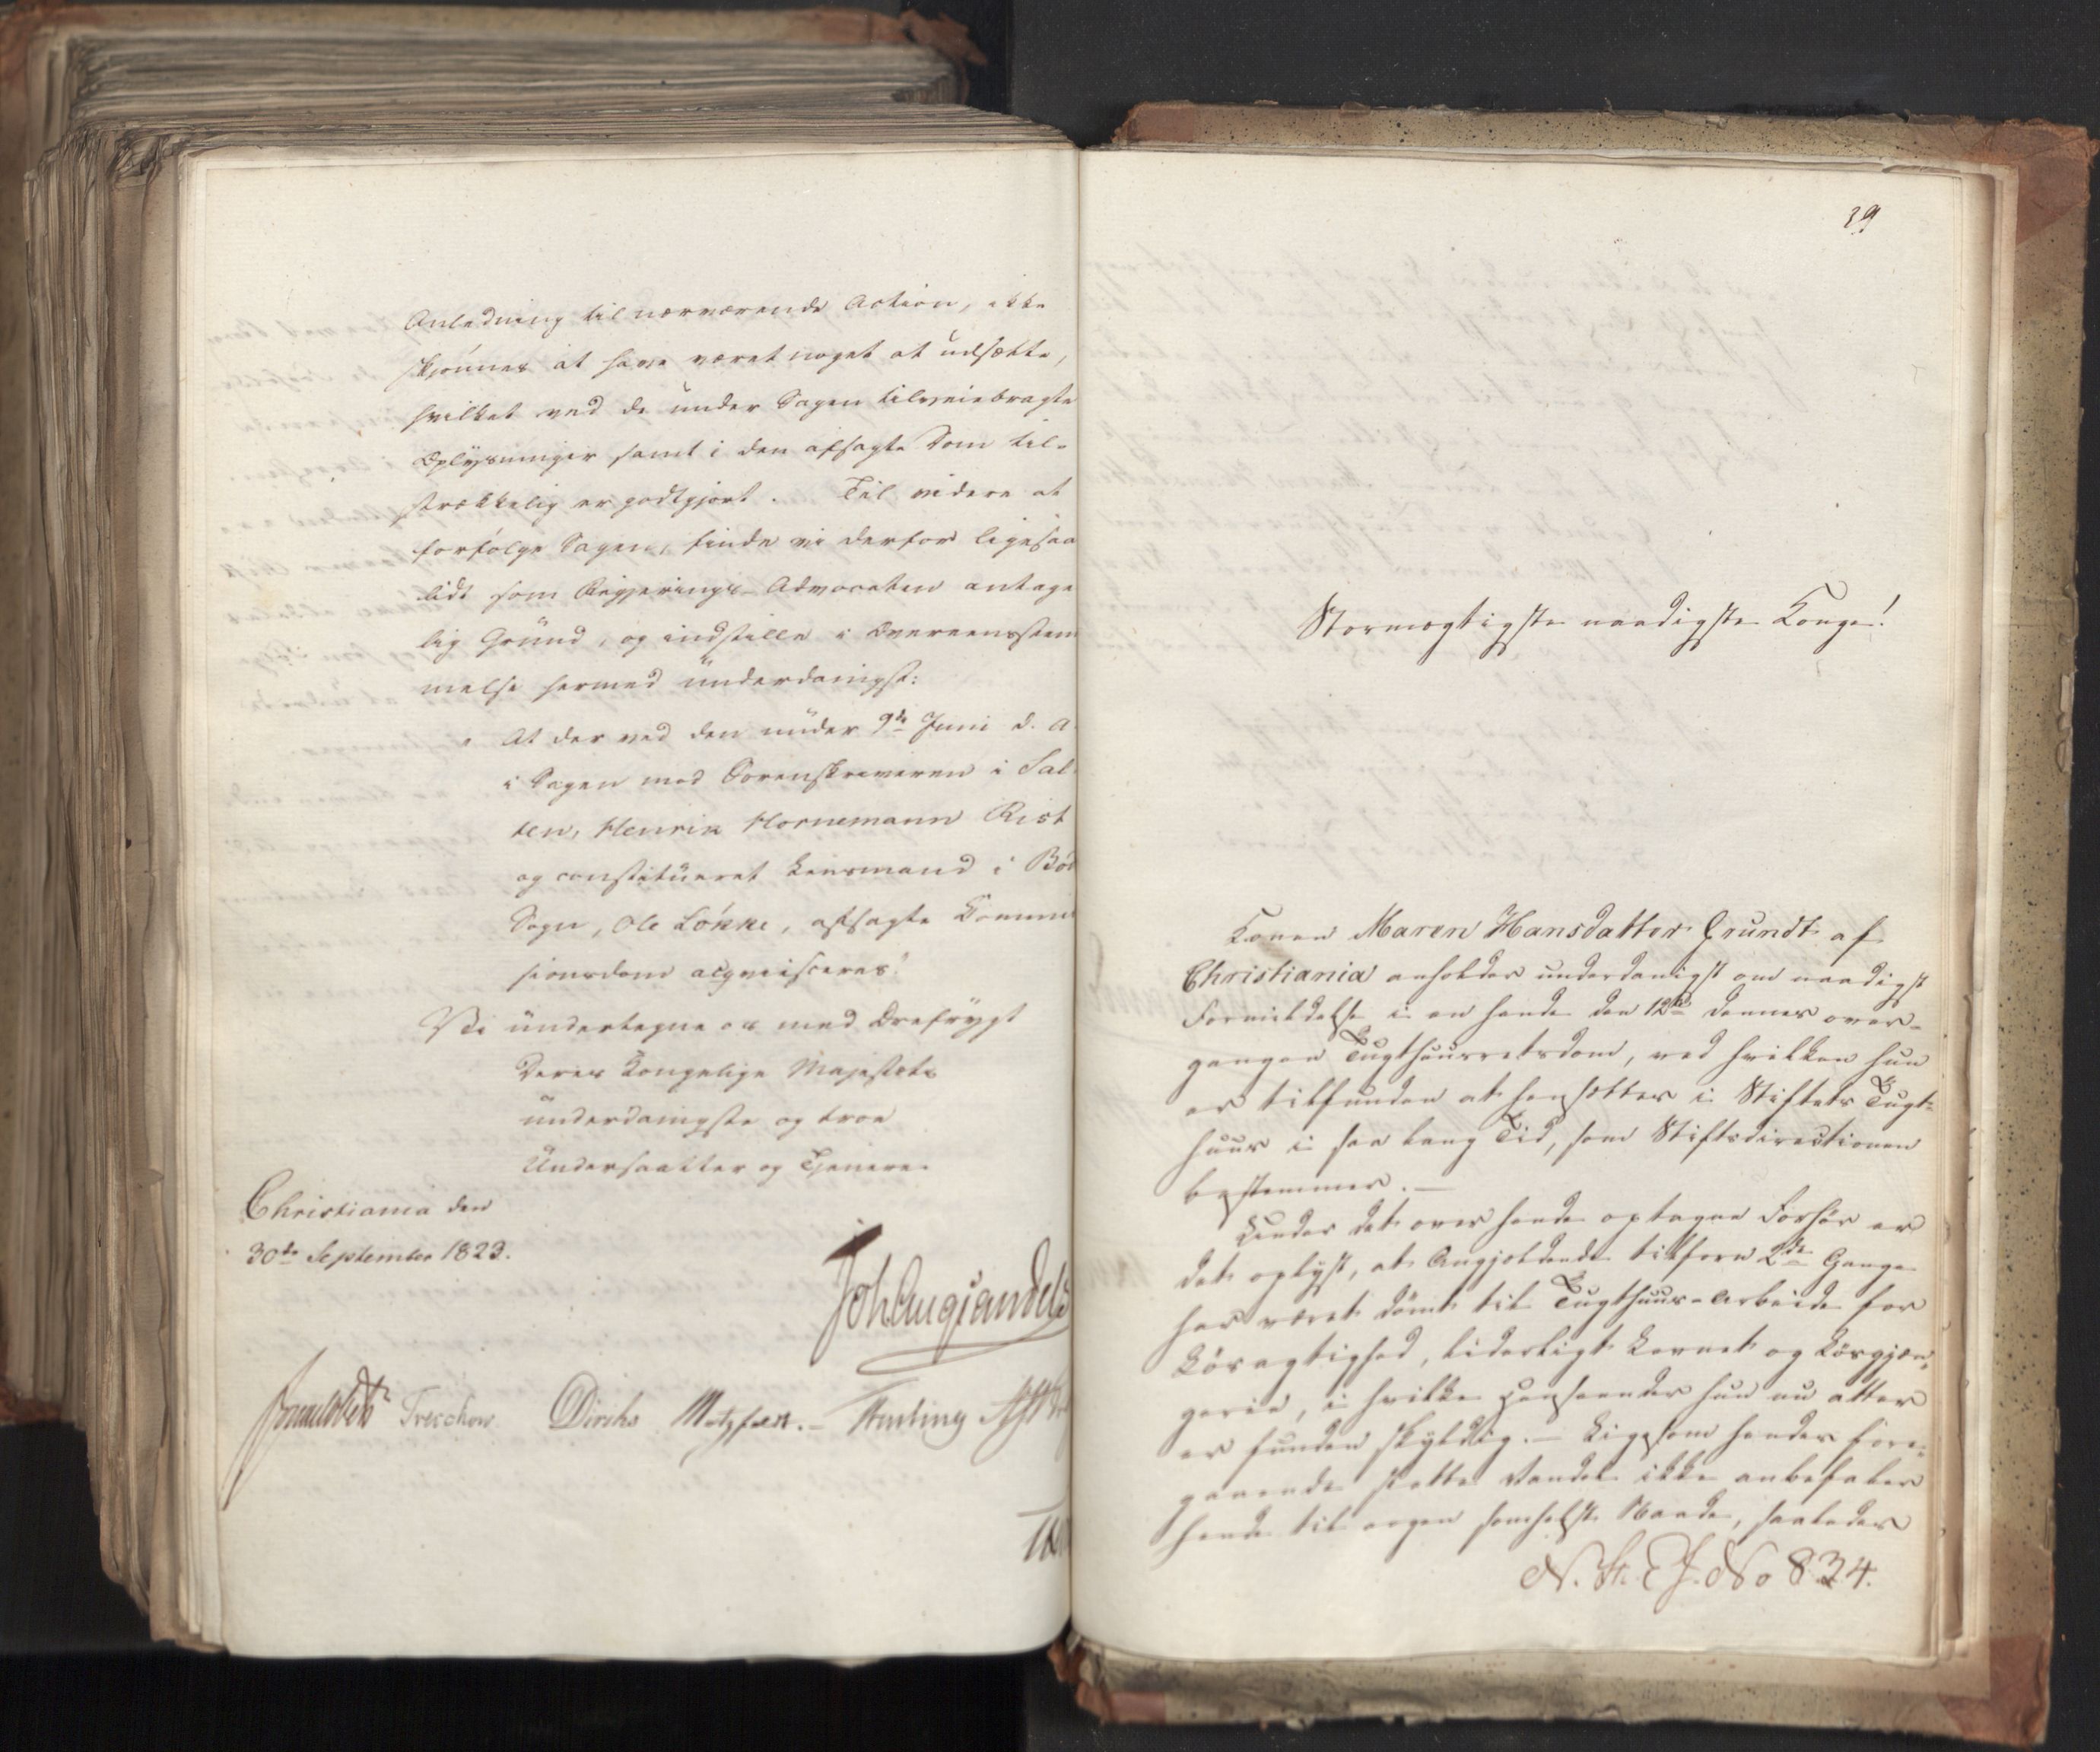 Anledning til nærværende Action, ikke
skjønnes at have været noget at udsætte,
hvilket ved de under Sagen tilveiebragte
Oplysninger samt i den afsagte Dom til-
strækkelig er godtgjort. Til videre at
forfølge Sagen, finde vi derfor ligesaa
lidt som Regjerings-Advocaten antage
lig Grund, og indstille i Overeensstem
melse hermed underdanigst:
At der ved den under 9de Juni d. A.
i Sagen mod Sorenskriveren i Sal-
ten, Henrik Hornemann Rist
og constitueret Lensmand i Bod
Sogn, Ole Løkke, afsagte Commis
sionsdom acqviesceres.
Vi undertegne os med Ærefrygt
Deres Kongelige Majestæts
underdanigste og troe
Undersaatter og Tjenere.
Christiania den
30de September 1823.
Joh. Aug. Sandels
Sommerhielm Treschow Diriks Motzfeldt.
39
Stormægtigste naadigste Konge!
Konen Maren Hansdatter Grundt af
Christiania anholder underdanigst om naadigst
Formildelse i en hende den 12te dennes over-
gangen Tugthuusretsdom, ved hvilken hun
er tilfunden at hensættes i Stiftets Tugt-
huus i saa lang Tid, som Stiftsdirectionen
bestemmer.—
Under det over hende optagne Forhør er
det oplyst, at Angjeldende tilforn 2de Gange
har været dømt til Tugthuus-Arbeide for
Løsagtighed, liderligt Levnet og Løsgjæn-
gerie, i hvilke Henseender hun nu atter
er funden skyldig.— Ligesom hendes fore-
gaaende slette Vandel ikke anbefaler
hende til nogen somhelst Naade, saaledes
N. St. E J. No 834.